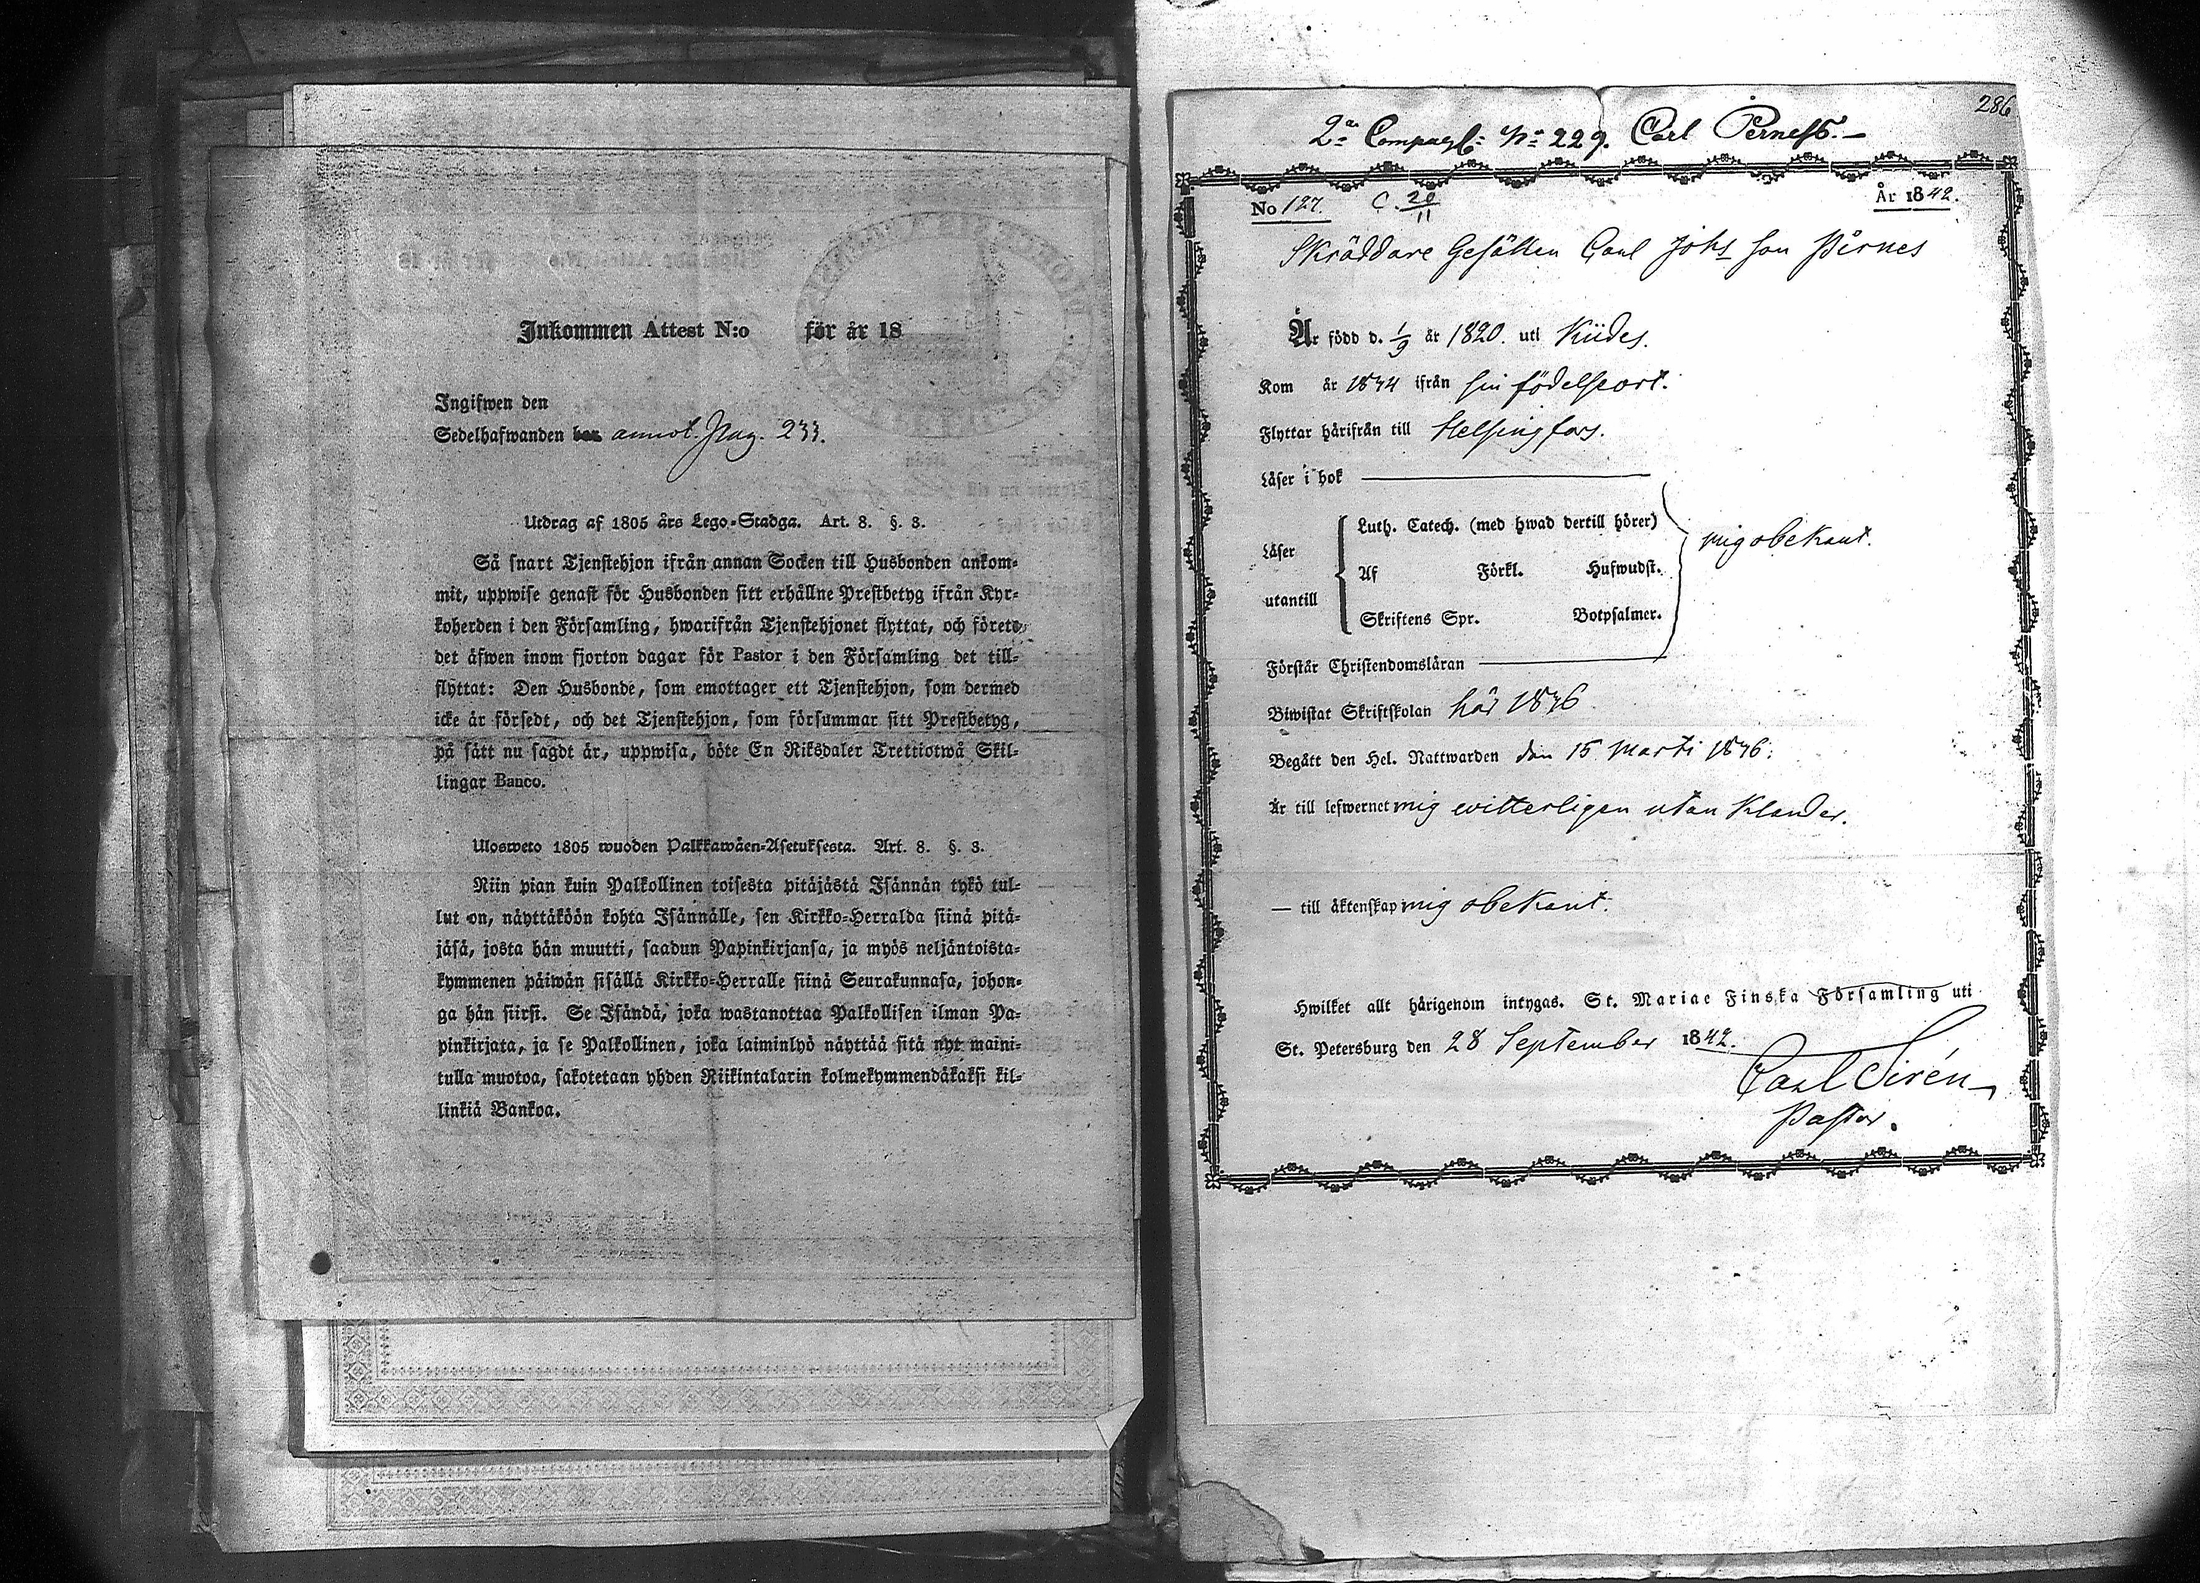 Inkommen Attest N:o för år 18
Ingifwen den
Sedelhafwanden annot. Pag. 233.
Utdrag af 1805 års Lego-Stadga. Art. 8. §. 3.
Så snart Tjenstehjon ifrån annan Socken till Husbonden ankom-
mit, uppwise genast för Husbonden sitt erhållne Prestbetyg ifrån Kyr-
koherden i den Församling, hwarifrån Tjenstehjonet flyttat, och förete
det äfwen inom fjorton dagar för Pastor i den Församling det till-
flyttat: Den Husbonde, som emottager ett Tjenstehjon, som dermed
icke är försedt, och det Tjenstehjon, som försummar sitt Prestbetyg,
på sått nu sagdt är, uppwisa, böte En Riksdaler Trettiotwå Skil-
lingar Banco.
Ulosweto 1805 wuoden Palkkawäen-Asetuksesta. Art. 8. §. 3.
Niin pian kuin Palkollinen toisesta pitäjästä Isännän tykö tul-
lut on, näyttäköön kohta Isännälle, sen Kirkko-Herralda siinä pitä-
jäsä, josta hän muutti, saadun Papinkirjansa, ja myös neljäntoista-
kymmenen päiwän sisällä Kirkko-Herralle siinä Seurakunnasa, johon-
ga hän siirsi. Se Isändä, joka wastanottaa Palkollisen ilman Pa-
pinkirjata, ja se Palkollinen, joka laiminlyö näyttää sitä nyt maini-
tulla muotoa, sakotetaan yhden Riikintalarin kolmekymmendäkaksi kil-
linkiä Bankoa.
286
2:a Compagt: No 229. Carl Perness.
No 127. C. 20/11 År 1842.
Skräddare Gesällen Carl Johs son Pärnes
Är född d. 1/9 år 1820. uti Kiides.
Kom år 1834 ifrån sin födelseort.
Flyttar härifrån till Helsingfors.
Läser i bok
Luth. Catech. (med hwad dertill hörer)
Läser
mig obekant.
Af Förkl. Hufwudst.
utantill
Skriftens Spr. Botpsalmer.
Förstår Christendomsläran
Biwistat Skriftskolan här 1836
Begått den Hel. Nattwarden den 15 Marti 1836.
Är till lefwernet mig witterligen utan klander.
— till äktenskap mig obekant.
Hwilket allt härigenom intygas. St. Mariae Finska Församling uti
St. Petersburg den 28 September 1842.
Carl Sirén
Pastor.